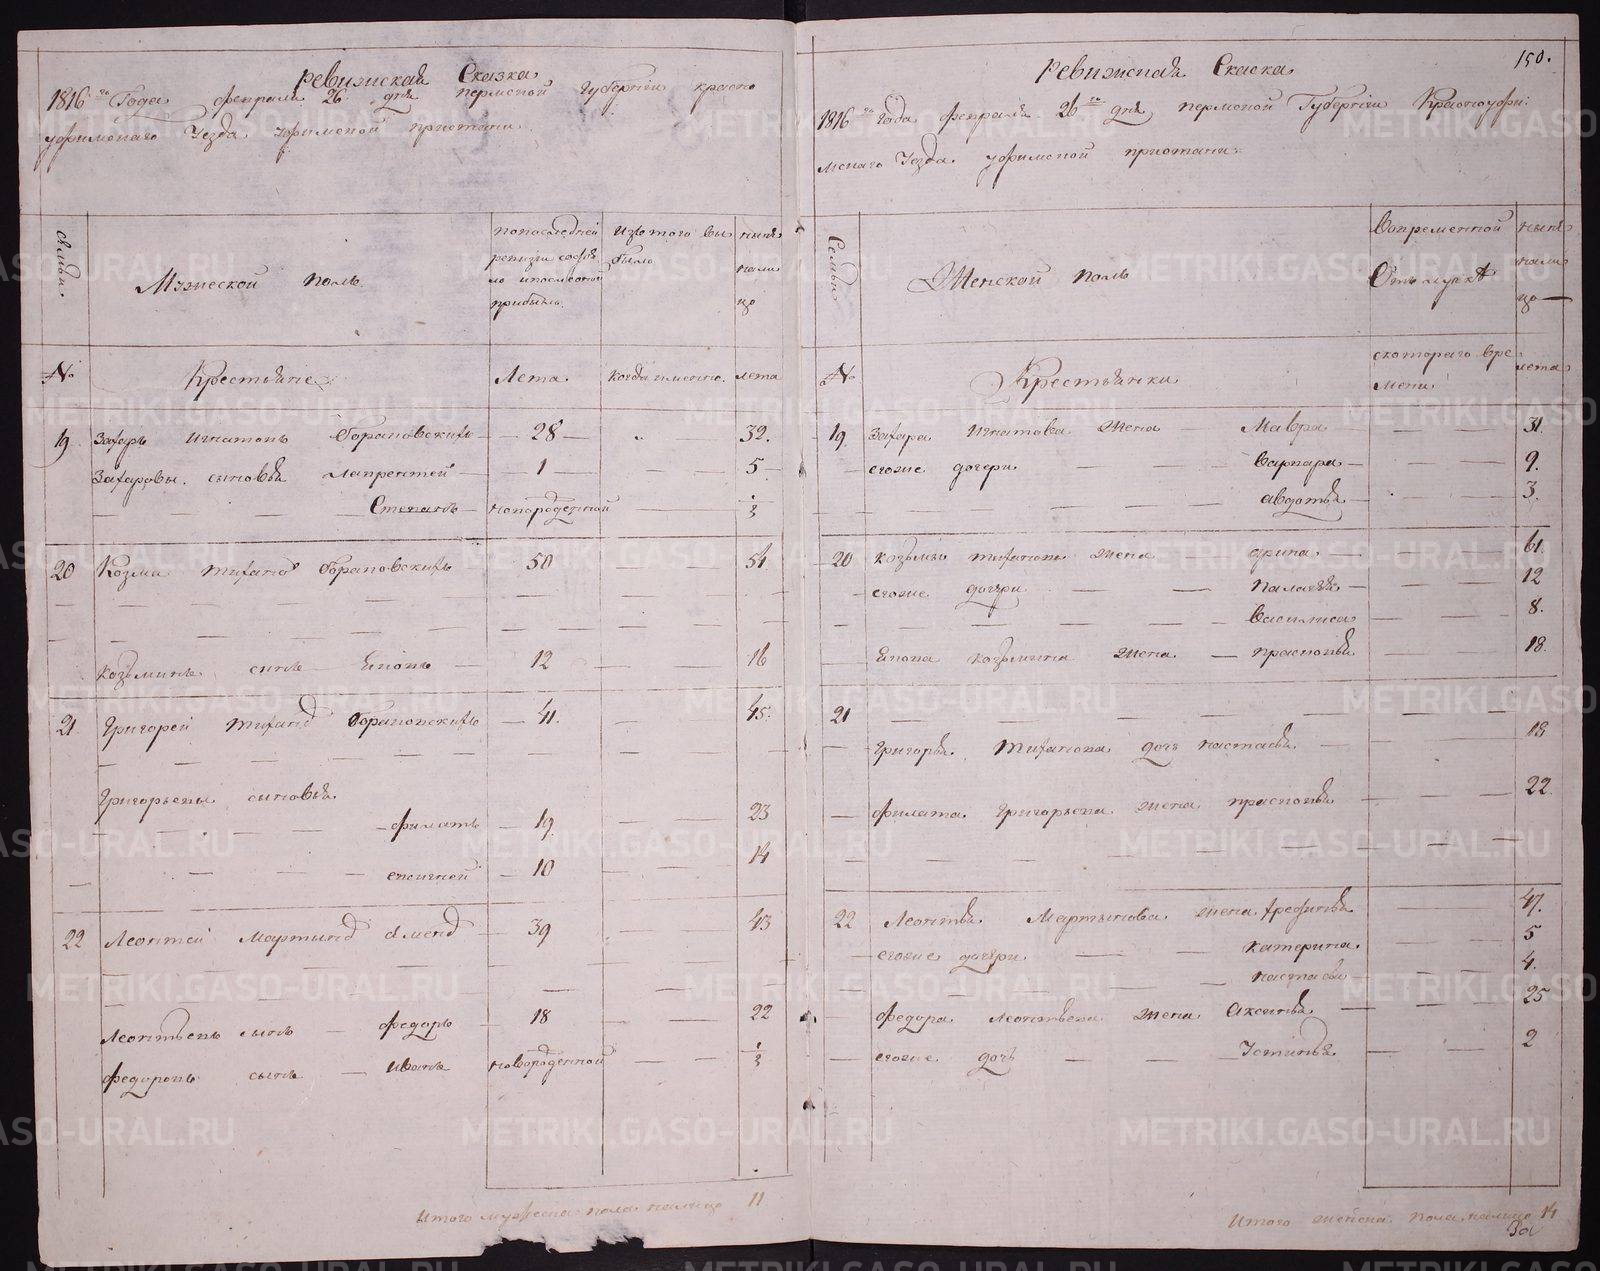 ревижская Сказка
1816 го Года февраля 26 дня пермской Губернiи красно
уфимскаго Уезда уфимской пристани
Семьи.
Мужеской поль
попоследней ревизи состояло ипоследней прибыло
Изтого выбыло
ныне налицо
№
Крестьяне
Лета
когда имянно.
лета
19 Захаръ игнатовъ Гораповскихъ 28 32.
Захаровы сыновья лаврентей 1 5
Степанъ новорожденной 1/2
20 Козма 50 54
козьминъ сынъ Епопъ 12 16
21 Григорей 41. 45.
Григорьевы сыновья
филатъ 19 23
евсигней 10 14
22 Леонтей Мартыновъ 39 43
Леонтьевъ сынъ федоръ 18 22
федоровъ сынъ иванъ новорожденной 1/2
Итого мужеска пола налицо 11
150.
Ревижская Скаска
1816 го года февраля 26 го дня пермской Губернiи Красноуфи:
мскаго Уезда уфимской пристани
Семьи
Женской поль
Вовременной Отлучке
ныне налицо
№
Крестьянки
скотораго времени
лета
19 Захара Игнатова жена Мавра 31.
егоже дочери варвара 9.
авдотья 3.
20 козьмы жена арина 61.
егоже дочери палагея 12
василиса 8.
козьмина жена прасковья 18.
21
Григорья дочь настасья 18
филата Григорьева жена прасковья 22
22 Леонтья Мартынова жена 47.
егоже дочери катерина 5
настасья 4.
федора леонтьева жена Аксинья 25
егоже дочь Устинья 2
Итого женска пола налицо 14
За
METRIKI.GASO-URAL.RU